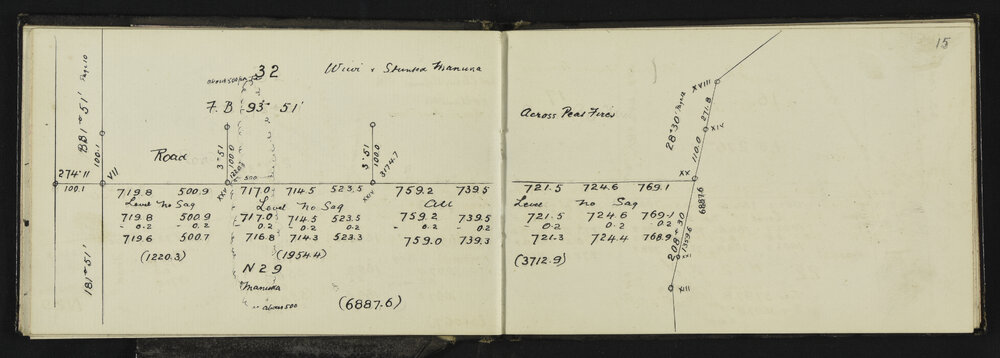 15
32
Wiwi & Stunted Manuka
about 500
F.B. 93° 51'
BB1° 51' Page 10
100.1
Across Peat Fires
XVIII
271.8
28°30' Page 12
XIX
110.0
XX
Road
3° 51
100.0
3° 51
100.0
3174.7
274° 11
VII
100.1
500
XXV
XXIV
719.8 500.9 717.0 714.5 523.5 759.2 739.5 721.5 724.6 769.1
Level No Sag Level No Sag All Level No Sag
719.8 500.9 717.0 714.5 523.5 759.2 739.5 721.5 724.6 769.1
- 0.2 0.2 0.2 - 0.2 0.2 - 0.2 0.2 - 0.2 0.2 0.2
719.6 500.7 716.8 714.3 523.3 759.0 739.3 721.3 724.4 768.9
(1220.3) (1954.4) (3712.9)
6887.6
208° 30
1359.6
XXI
XIII
181° 51'
N29
Manuka
about 500
(6887.6)